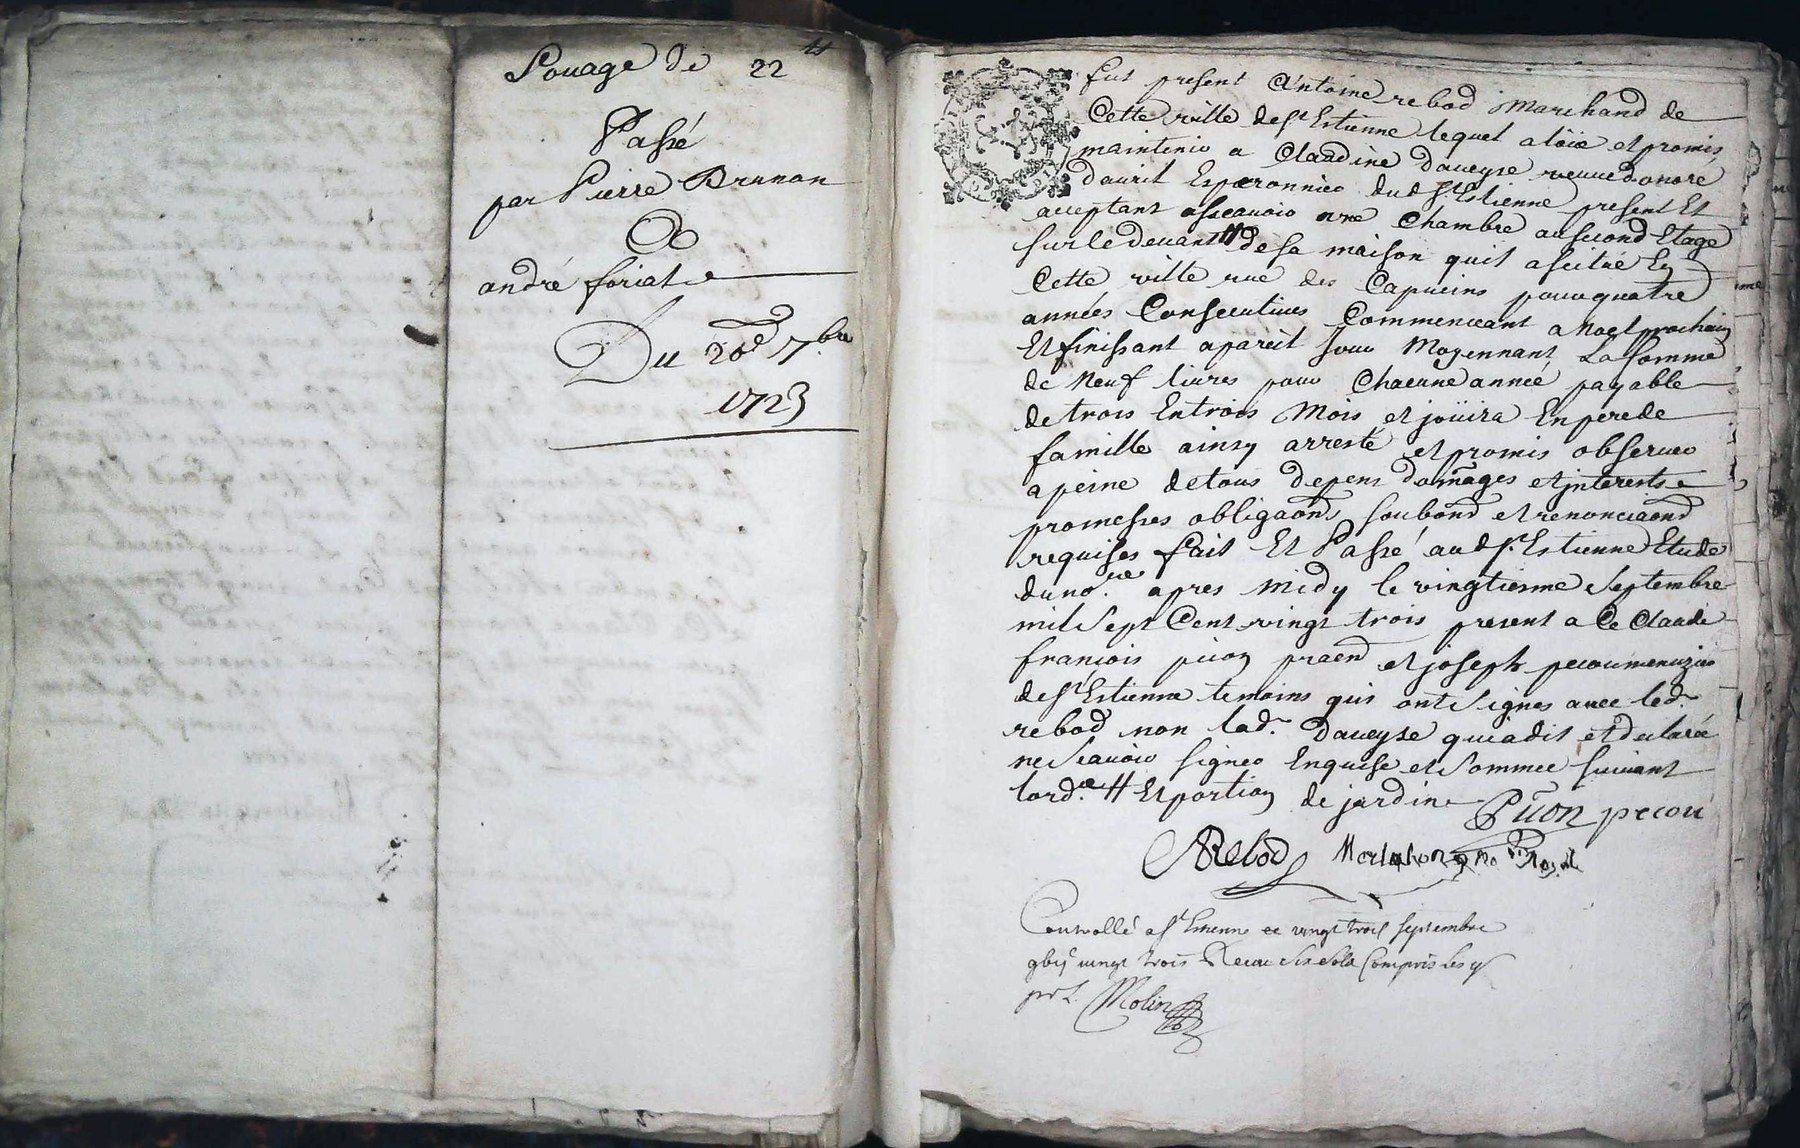 Louage de 22ᵗˢ
Passé
par Pierre Brunon
a
andré foriat
Du 20ᵉ 7.bre
1723
fut present Antoine rebod Marchand de
Cette ville de sᵗ Estienne lequel a loüé et promis
maintenir a Claudine Daveyse veuve donoré
Davril Esperonnier dud sᵗ Estienne present Et
acceptant assçavoir une Chambre au second Etage
sur le devant # de sa maison quil a scitué En
Cette ville rue des Capucins pour quatre
années Consecutives Commenceant a Noel prochain
Et finissant a pareil jour Moyennant La somme
de Neuf livres pour Chacune année payable
de trois En trois Mois et joüira En pere de
famille ainsy arresté et promis observer
a peine de tous depens dom̃ages et jnterests
promesses obligaons soubons et renonciaons
requises fait Et Passé aud sᵗ. Estienne Etude
du no.re apres midy le vingtieme septembre
mil sept Cent vingt trois present a Ce Claude
françois pion praen et joseph pecou menuzier
de sᵗ Estienne temoins quis ont signes avec led.
rebod non lad. Daveyse qui a dit et declaré
ne scavoir signer Enquise et sommee suivant
lord.ce # Et portion de jardin Püon pecou
ARebod
Controllé a sᵗ Etienne ce vingt trois septembre
gbij vingt trois Receu six sols Compris les
Molin